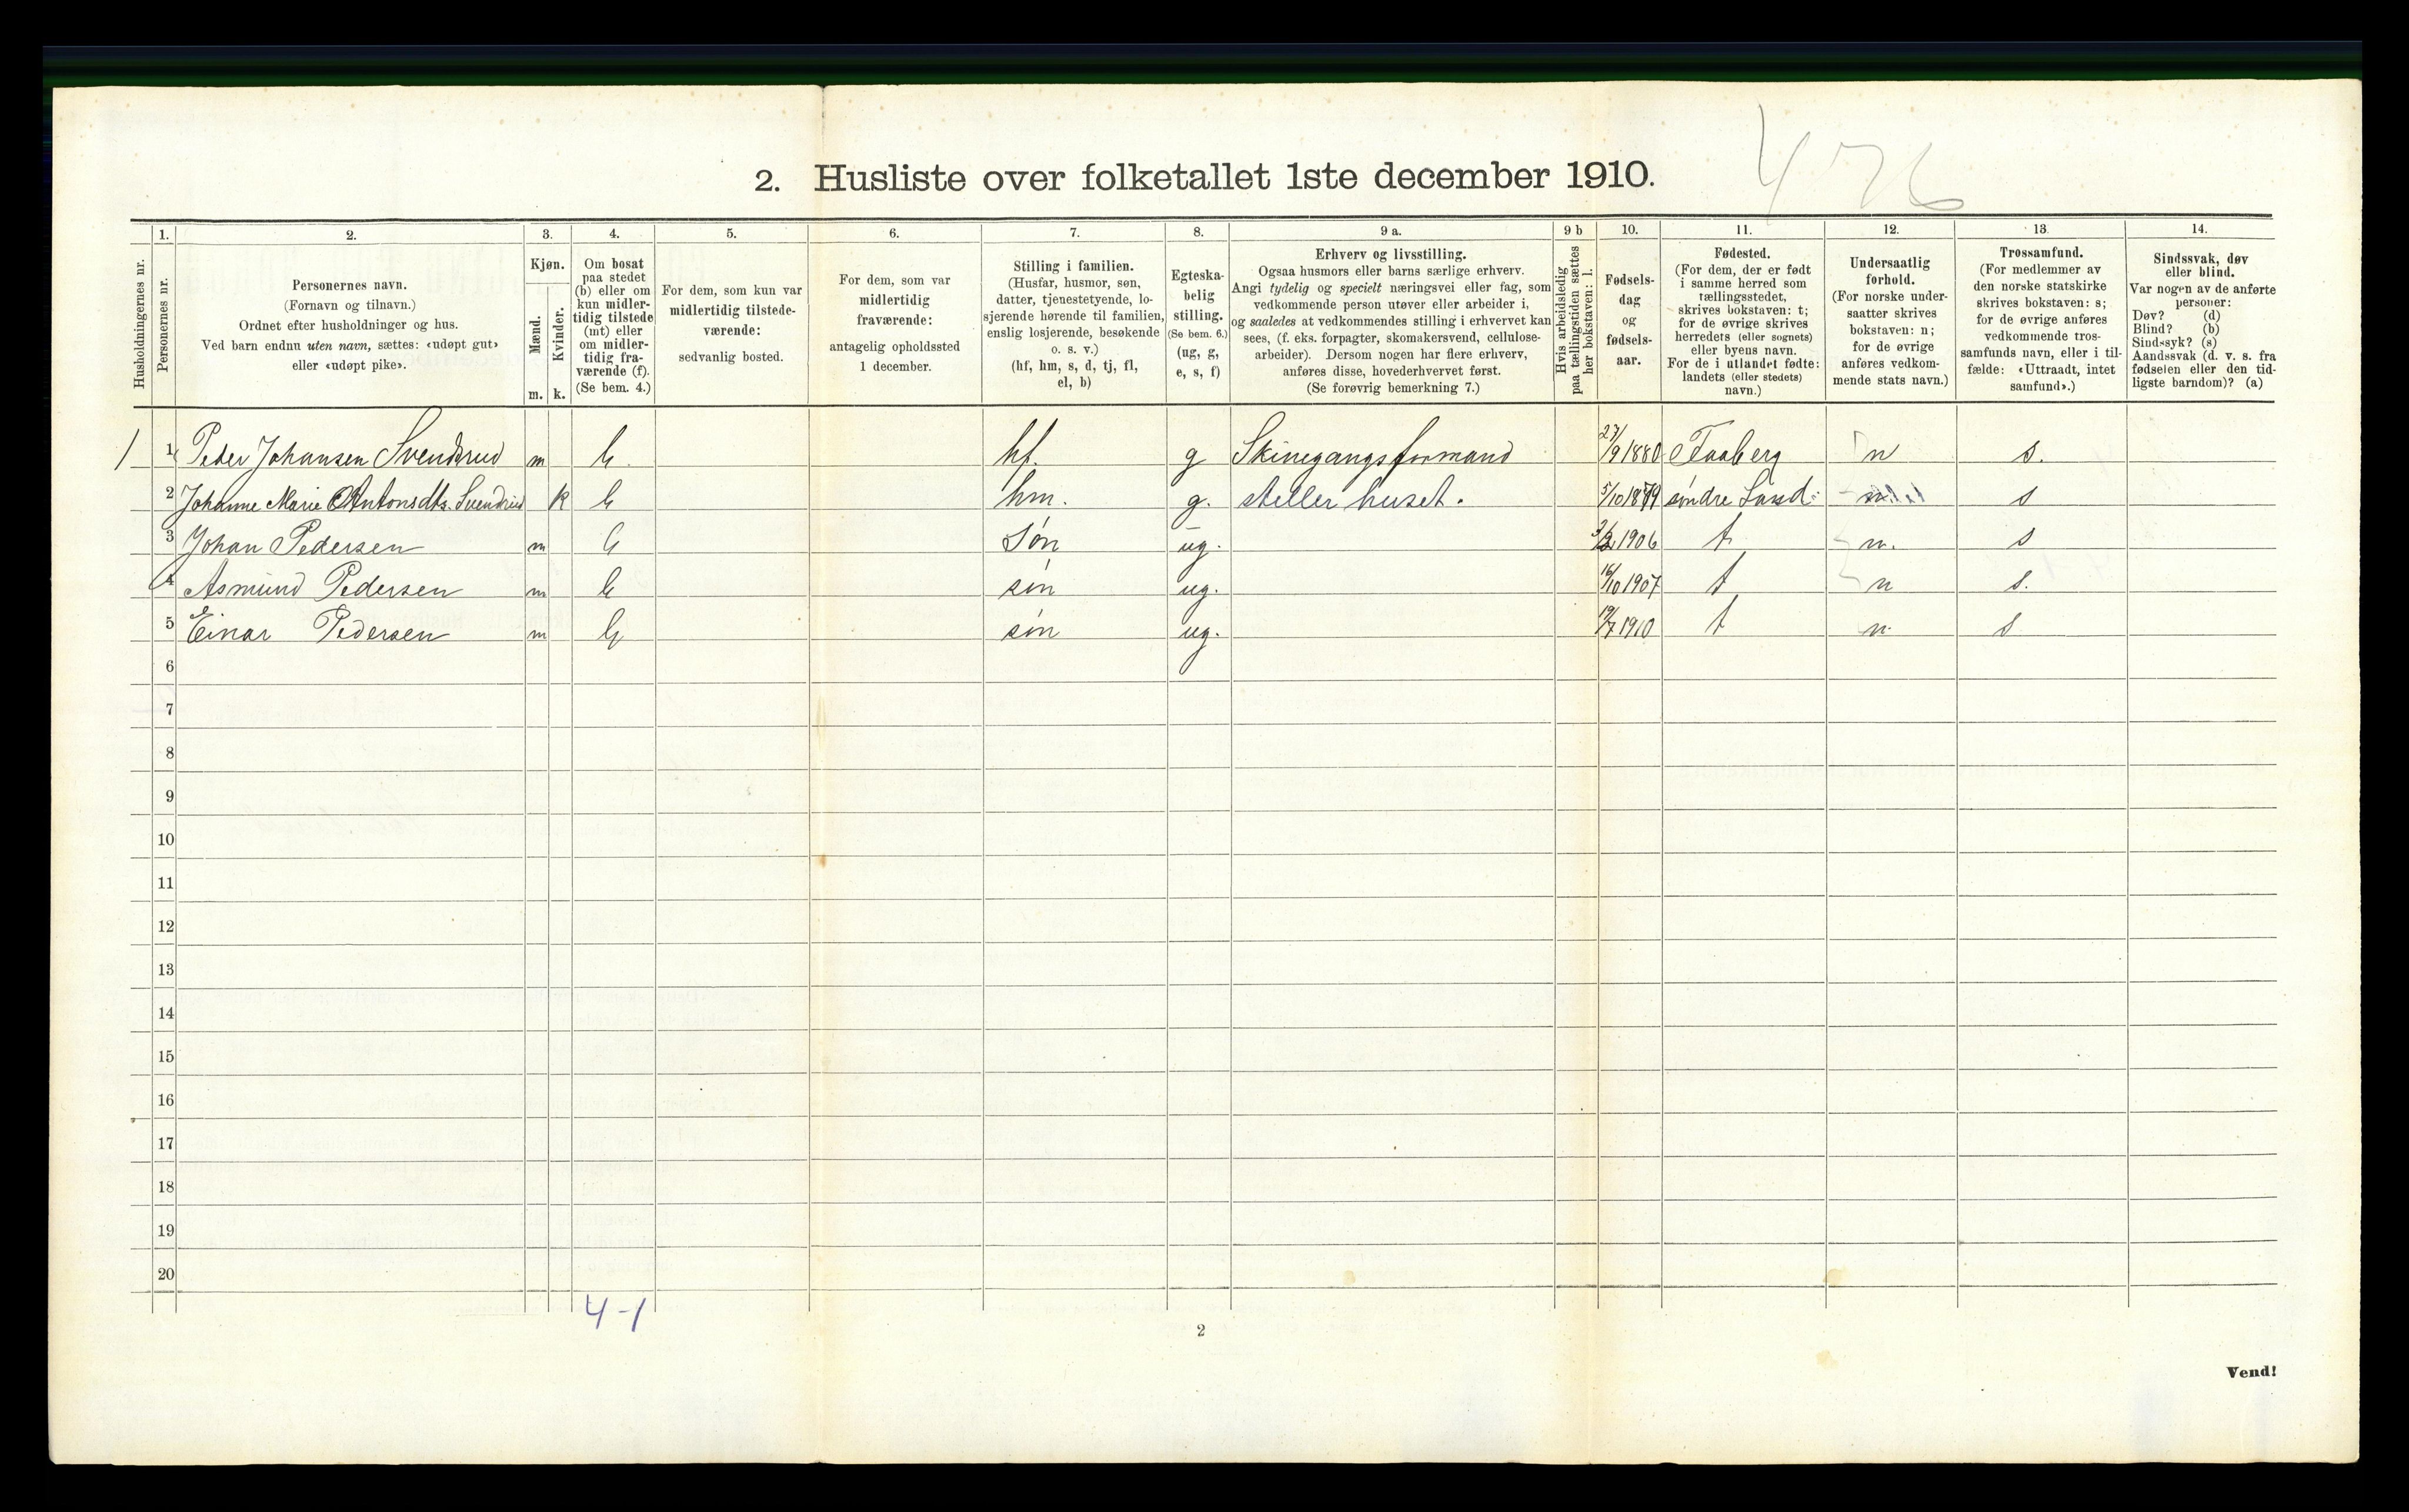 476
2. Husliste over folketallet 1ste december 1910.
Husholdningernes nr.
1. Personernes nr.
2. Personernes navn.
(Fornavn og tilnavn.)
Ordnet efter husholdninger og hus.
Ved barn endnu uten navn, sættes: «udøpt gut»
eller «udøpt pike».
3. Kjøn.
Mænd. m.
Kvinder. k.
4. Om bosat
paa stedet
(b) eller om
kun midler-
tidig tilstede
(mt) eller
om midler-
tidig fra-
værende (f).
(Se bem. 4.)
5. For dem, som kun var
midlertidig tilstede-
værende:
sedvanlig bosted.
6. For dem, som var
midlertidig
fraværende:
antagelig opholdssted
1 december.
7. Stilling i familien.
(Husfar, husmor, søn,
datter, tjenestetyende, lo-
sjerende hørende til familien,
enslig losjerende, besøkende
o. s. v.)
(hf, hm, s, d, tj, fl,
el, b)
8. Egteska-
belig
stilling.
(Se bem. 6.)
(ug, g,
e, s, f)
9 a. Erhverv og livsstilling.
Ogsaa husmors eller barns særlige erhverv.
Angi tydelig og specielt næringsvei eller fag, som
vedkommende person utøver eller arbeider i,
og saaledes at vedkommendes stilling i erhvervet kan
sees, (f. eks. forpagter, skomakersvend, cellulose-
arbeider). Dersom nogen har flere erhverv,
anføres disse, hovederhvervet først.
(Se forøvrig bemerkning 7.)
9 b Hvis arbeidsledig
paa tællingstiden sættes
her bokstaven: l.
10. Fødsels-
dag
og
fødsels-
aar.
11. Fødested.
(For dem, der er født
i samme herred som
tællingsstedet,
skrives bokstaven: t;
for de øvrige skrives
herredets (eller sognets)
eller byens navn.
For de i utlandet fødte:
landets (eller stedets)
navn.)
12. Undersaatlig
forhold.
(For norske under-
saatter skrives
bokstaven: n;
for de øvrige
anføres vedkom-
mende stats navn.)
13. Trossamfund.
(For medlemmer av
den norske statskirke
skrives bokstaven: s;
for de øvrige anføres
vedkommende tros-
samfunds navn, eller i til-
fælde: «Uttraadt, intet
samfund».)
14. Sindssvak, døv
eller blind.
Var nogen av de anførte
personer:
Døv? (d)
Blind? (b)
Sindssyk? (s)
Aandssvak (d. v. s. fra
fødselen eller den tid-
ligste barndom)? (a)
1 1 Peder Johansen Svendsrud m b. hf. g Skinegangsformand 27/9 1880 Faaberg n s.
2 Johanne Marie Antonsdtr. Svendsrud k b hm. g. steller huset. 5/10 1879 søndre Land n s
3 Johan Pedersen m b søn ug. 1906 t n. s
4 Asmund Pedersen m b søn ug. 16/10 1907 t n s.
5 Einar Pedersen m b søn ug. 19/7 1910 t n s
6
7
8
9
10
11
12
13
14
15
16
17
18
19
20
4-1
2
Vend!